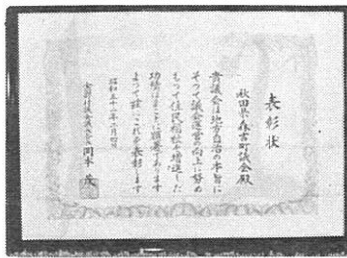 表彰状
秋田県森吉町議会殿
貴議会は地方自治の本旨に
そつて議会運営の向上に努め
もつて住民福祉を増進した
功績はまことに顕著であります
よつて茲にこれを表彰します
昭和三十二年二月四日
全国町村議会議長会長 岡本 茂